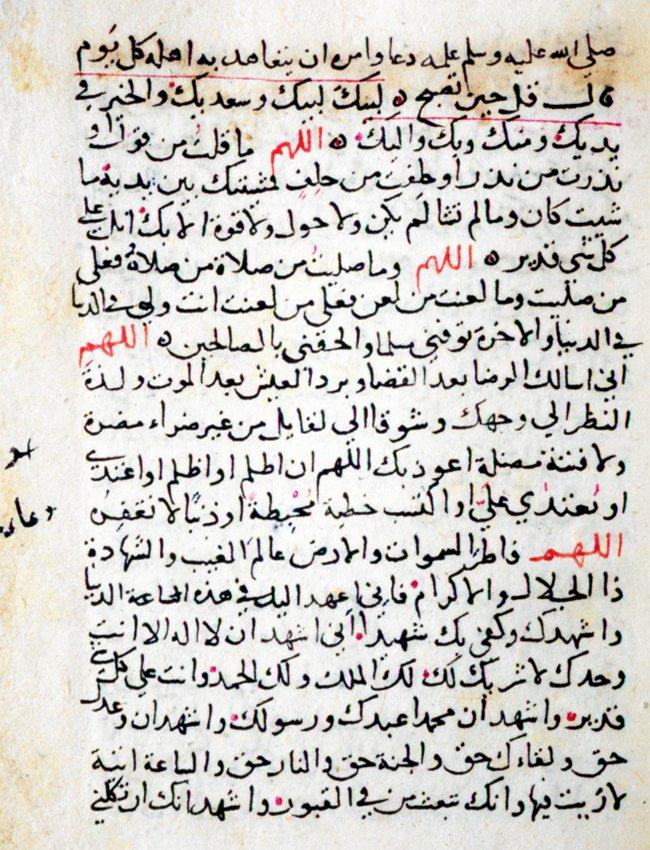 صلى الله عليه وسلم علمه دعا وامره ان يتعاهد به اهله كل يوم
قال قل حين تصبح ه لبيك لبيك وسعديك والخير في
يديك ومنك وبك واليك ه اللهم ما قلت من قول او
نذرت من نذر او حلفت من حلف فمشيتك بين يديه ما
شيت كان وما لم تشا لم يكن ولا حول ولا قوة الا بك انك على
كل شى قدير ه اللهم وما صليت من صلاة من صلاة فعلى
من صليت وما لعنت من لعن فعلى من لعنت انت وليي في الدنيا
في الدنيا والاخرة توفني مسلما والحقني بالصالحين ه اللهم
اني اسالك الرضا بعد القضا وبرد العيش بعد الموت ولذة
النظر الي وجهك وشوقا الي لقايك من غير ضراء مضرة
ولا فتنة مضلة اعوذ بك اللهم ان اظلم او اظلم او اعتدي
او يُعتدي عليّ او اكتسب خطية مُحْبِطةً او ذنبًا لا تغفره
اللهم فاطر السموات والارض عالم الغيب والشهادة
ذا الجلال والاكرام فاني اعهد اليك في هذه الحياة الدنيا
واشهدك وكفي بك شهيدا اني اشهد ان لا اله الا انت
وحدك لا شريك لك لك الملك ولك الحمد وانت علي كل شي
قدير واشهد ان محمدا عبدك ورسولك واشهد ان وعدك
حق ولقاءك حق والجنة حق والنار حق والساعة اتية
لا ريب فيها وانك تبعث من في القبور واشهد انك ان تكلني
دعاء